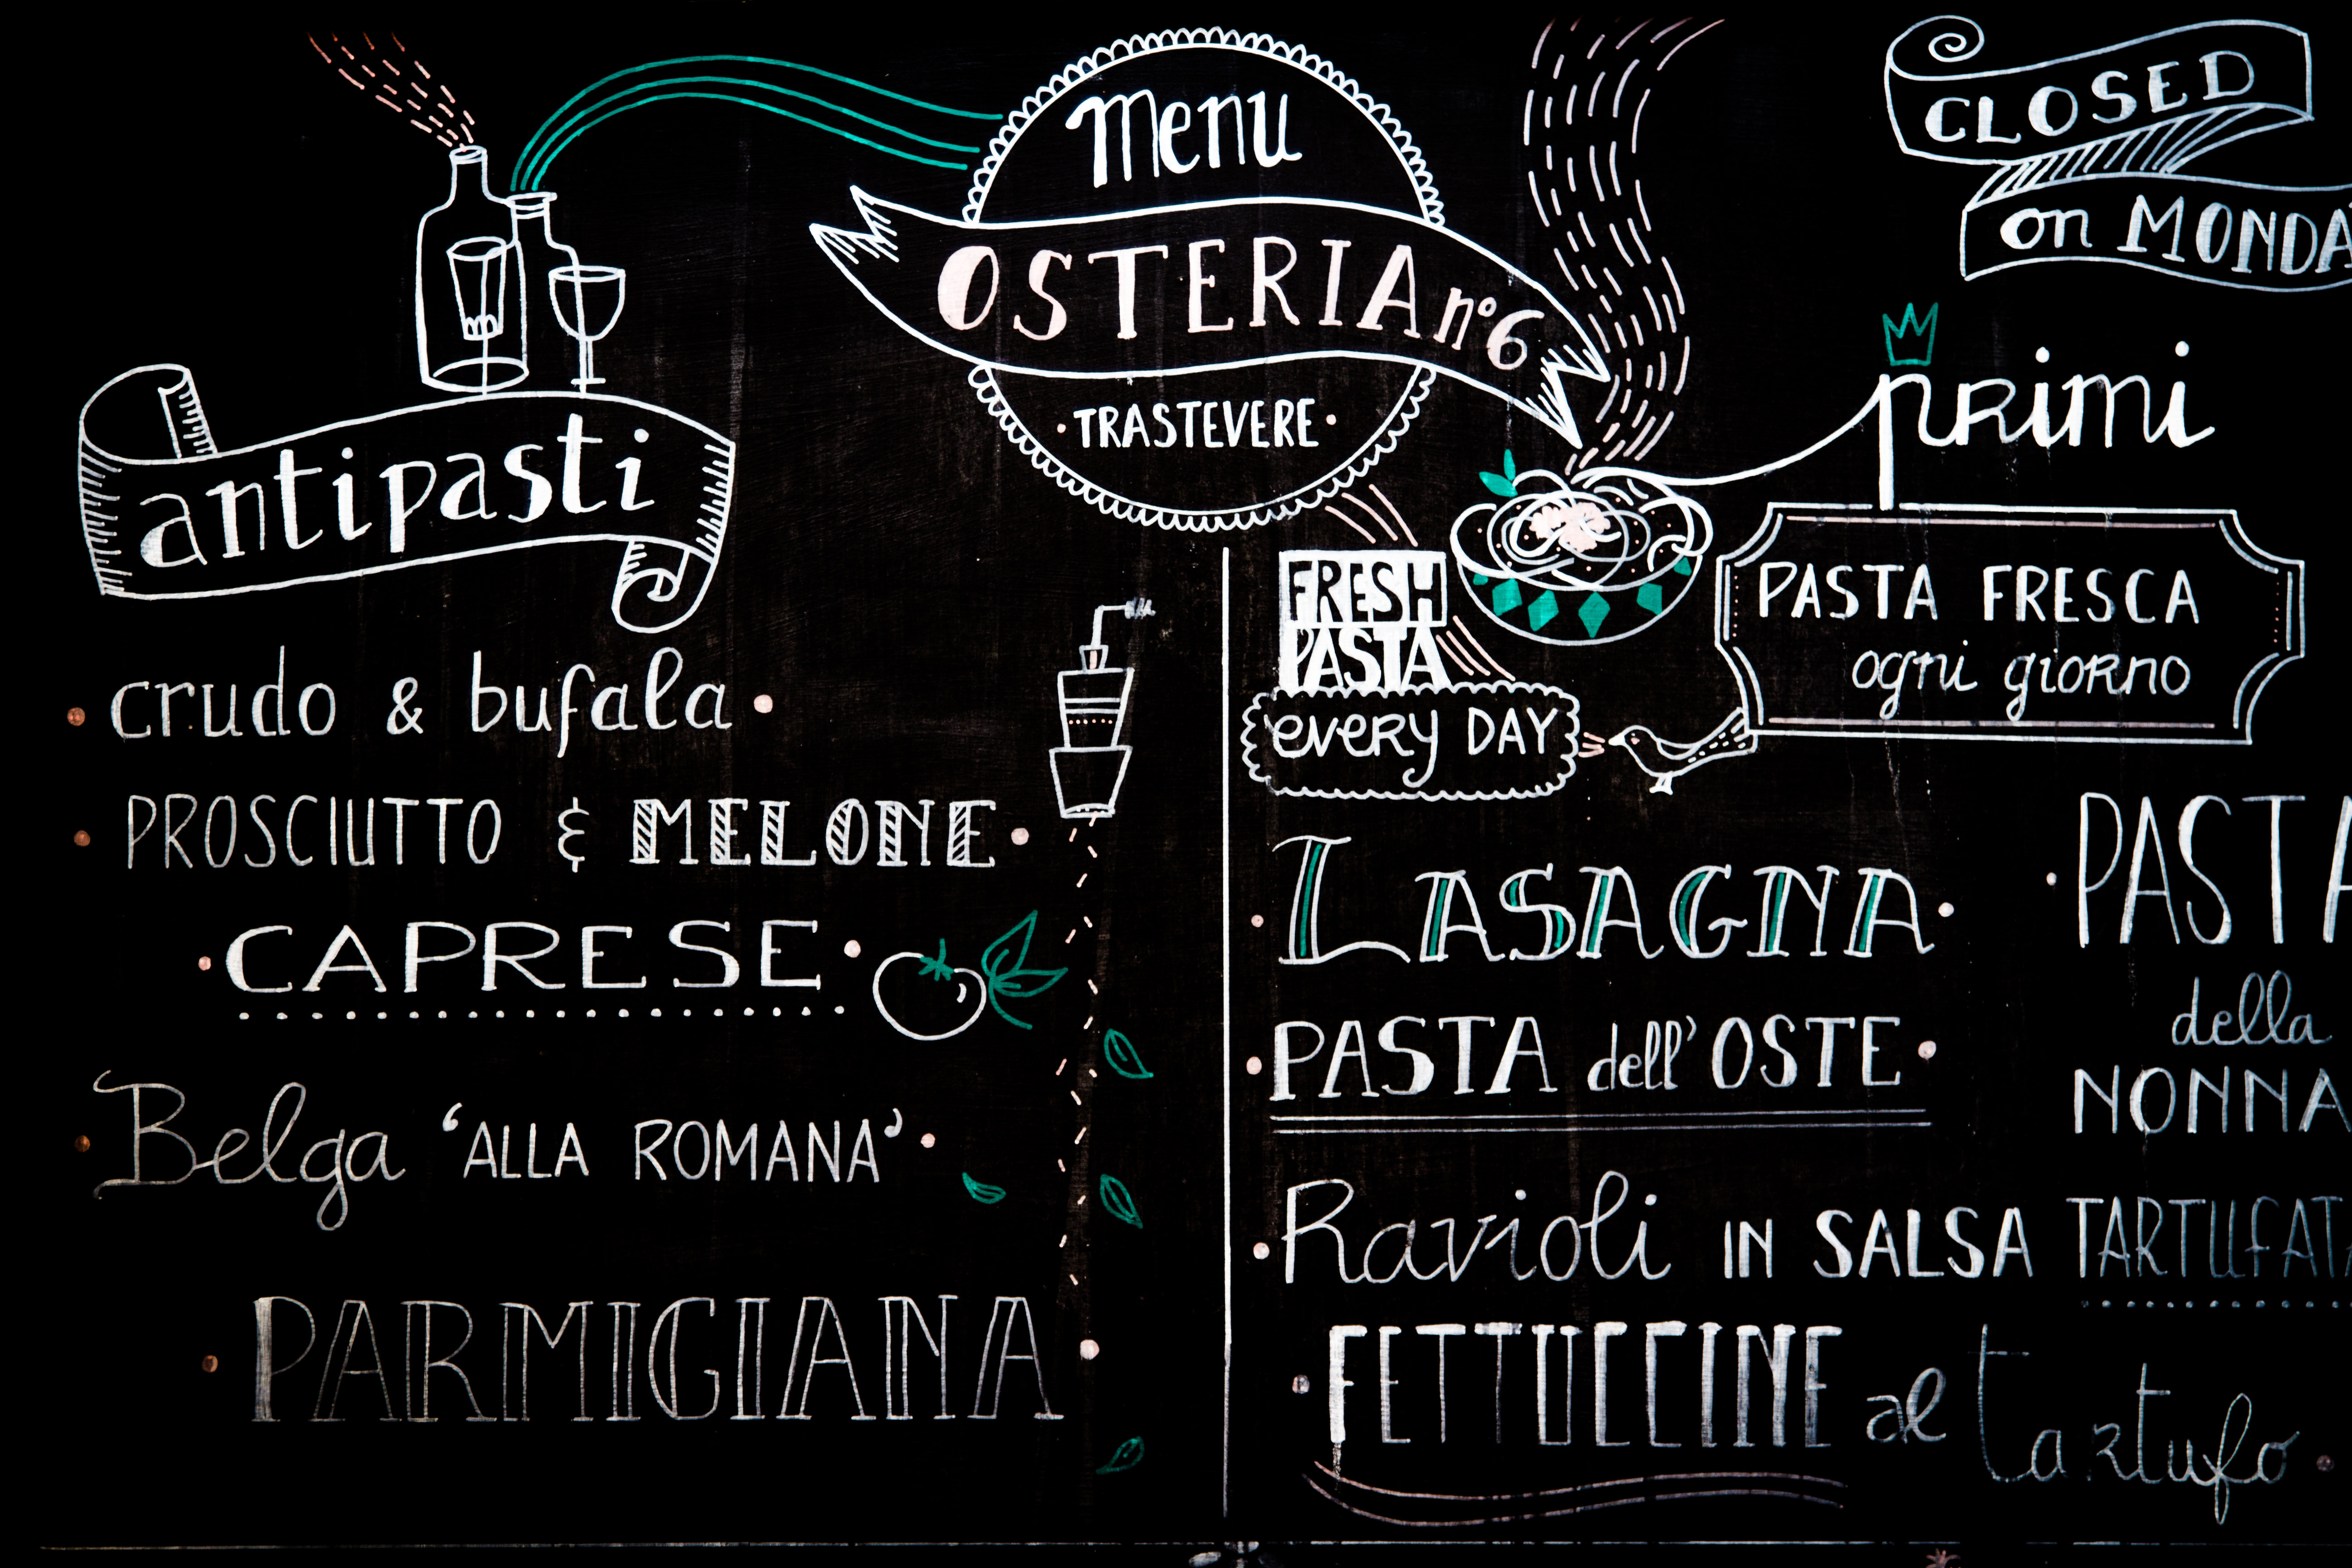 Menu
OSTERIA n° 6
TRASTEVERE
CLOSED
on MONDA
antipasti
crudo & bufala
PROSCIUTTO & MELONE
CAPRESE
Belga 'ALLA ROMANA'
PARMIGIANA
primi
PASTA FRESCA
ogni giorno
FRESH
PASTA
every DAY
LASAGNA
PASTA dell'OSTE
PASTA
della
NONNA
Ravioli IN SALSA TARTUFATA
FETTUCCINE al tartufo